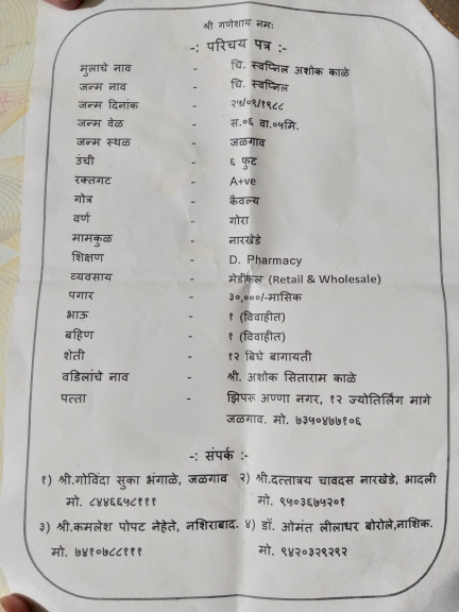 श्री गणेशाय नमः
-: परिचय पत्र :-
मुलाचे नाव - चि. स्वप्निल अशोक काळे
जन्म नाव - चि. स्वप्निल
जन्म दिनांक - २५/०९/१९८८
जन्म वेळ - स.०६ वा.०५मि.
जन्म स्थळ - जळगाव
उंची - ६ फुट
रक्तगट - A+ve
गोत्र - कैवल्य
वर्ण - गोरा
मामकुळ - नारखेडे
शिक्षण - D. Pharmacy
व्यवसाय - मेडीकल (Retail & Wholesale)
पगार - ३०,०००/-मासिक
भाऊ - १ (विवाहीत)
बहिण - १ (विवाहीत)
शेती - १२ बिघे बागायती
वडिलांचे नाव - श्री. अशोक सिताराम काळे
पत्ता - झिपरू अण्णा नगर, १२ ज्योतिर्लिंग मागे
जळगाव. मो. ७३५०४७७१०६
-: संपर्क :-
१) श्री.गोविंदा सुका भंगाळे, जळगाव २) श्री.दत्तात्रय चावदस नारखेडे, भादली
मो. ८४४६६५८१११ मो. ९५०३६७५२०१
३) श्री.कमलेश पोपट नेहेते, नशिराबाद. ४) डॉ. ओमंत लीलाधर बोरोले,नाशिक.
मो. ७४१०७८८१११ मो. ९४२०३२९२९२